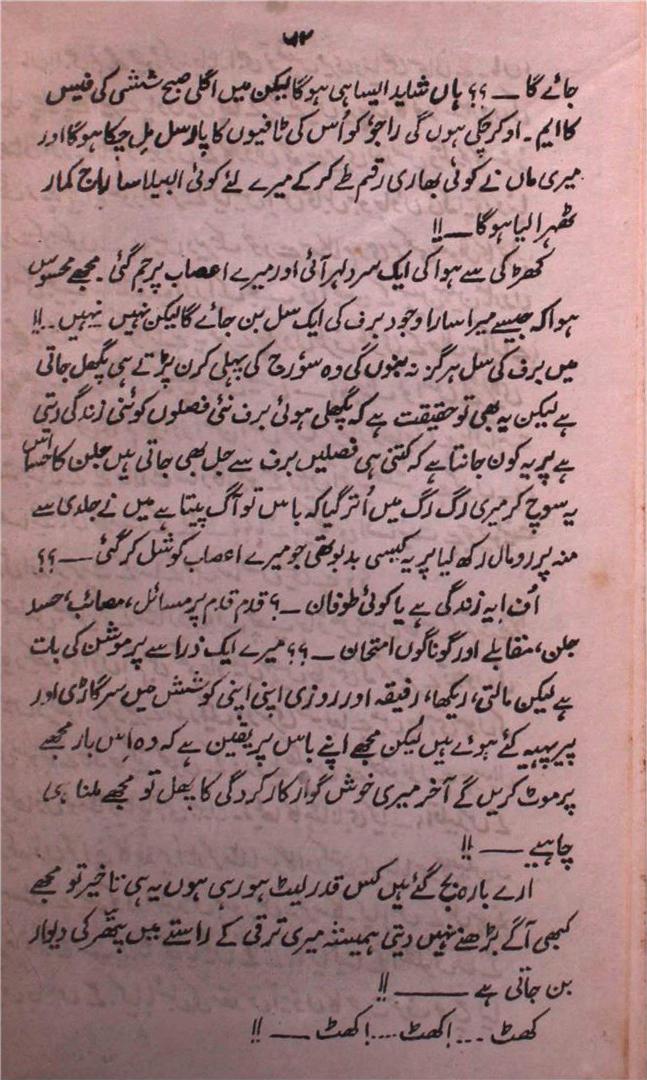 ۵۲
جائے گا ـــ ؟؟ ہاں شاید ایسا ہی ہوگا لیکن میں اگلی صبح ششی کی فیس
کا ایم۔ او کر چکی ہوں گی راجو کو اُس کی ٹافیوں کا پارسل مل چکا ہوگا اور
میری ماں نے کوئی بھاری رقم طے کر کے میرے لئے کوئی البیلا سا راج کمار
ٹھہرا لیا ہوگا ـــ !!
کھڑکی سے ہوا کی ایک سرد لہر آئی اور میرے اعصاب پر جم گئی۔ مجھے محسوس
ہوا کہ جیسے میرا سارا وجود برف کی ایک سل بن جائے گا لیکن نہیں نہیں ـ !!
میں برف کی سل ہرگز نہ بنوں گی وہ سوُرج کی پہلی کرن پڑتے ہی پگھل جاتی
ہے لیکن یہ بھی تو حقیقت ہے کہ پگھلی ہوئی برف نئی فصلوں کو نئی زندگی دیتی
ہے پر یہ کون جانتا ہے کہ کتنی ہی فصلیں برف سے جل بھی جاتی ہیں جلن کا احساس
یہ سوچ کر میری رگ رگ میں اُتر گیا کہ باس تو آگ پیتا ہے میں نے جلدی سے
منہ پر رومال رکھ لیا پر یہ کیسی بدبو تھی جو میرے اعصاب کو شل کر گئی ـــ ؟؟
اُف ! یہ زندگی ہے یا کوئی طوفان ـ ؟ قدم قدم پر مسائل، مصائب، حسد
جلن، مقابلے اور گوناگوں امتحان ـــ ؟؟ میرے ایک ذرا سے پرموشن کی بات
ہے لیکن مالتی، ریکھا، رفیقہ اور روزی اپنی اپنی کوشش میں سرگاڑی اور
پیر پہیہ کئے ہوئے ہیں لیکن مجھے اپنے باس پر یقین ہے کہ وہ اس بار مجھے
پرموٹ کریں گے آخر میری خوش گوار کارکردگی کا پھل تو مجھے ملنا ہی
چاہیے ـــ !!
ارے بارہ بج گئے ہیں کس قدر لیٹ ہو رہی ہوں یہ ہی تاخیر تو مجھے
کبھی آگے بڑھنے نہیں دیتی ہمیشہ میری ترقی کے راستے میں پتھر کی دیوار
بن جاتی ہے ـــــ !!
کھٹ ... !کھٹ .... !کھٹ ـــ !!